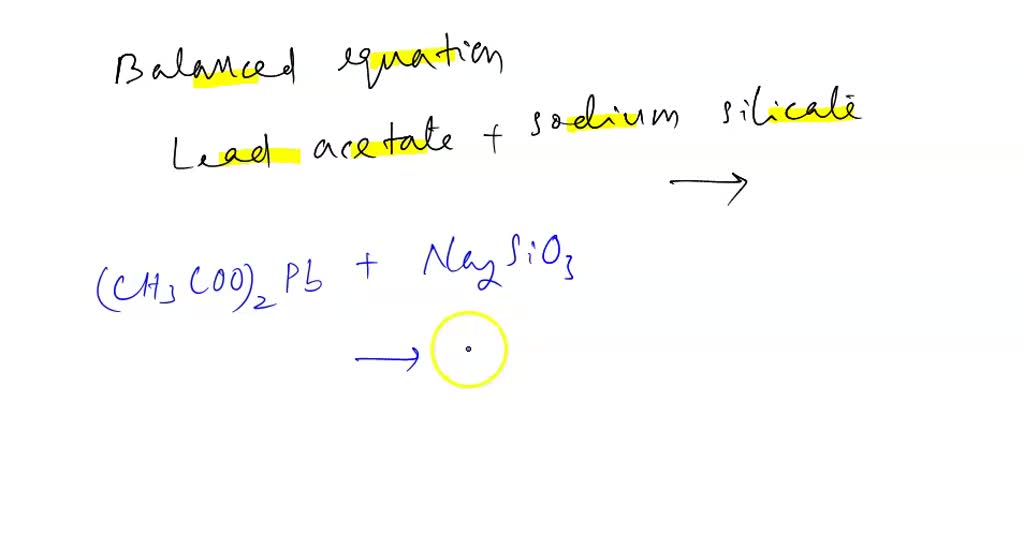 Balanced equation
Lead acetate + sodium silicate
→
(CH3COO)2 Pb + Na2SiO3
→